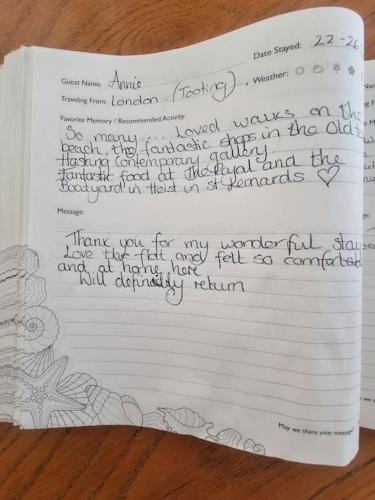 Date Stayed: 22-26
Guest Name: Annie
Traveling From: London (Tooting), Weather:
Favorite Memory / Recommended Activity
So many... Loved walks on the
beach, the fantastic shops in the Old
Hasting Contemporary gallery.
Fantastic food at The Royal and the
Boatyard in Heist in St Lenards ♡
Message:
Thank you for my wonderful stay
Love the flat and felt so comforted
and at home here
Will definitely return
May we share your message